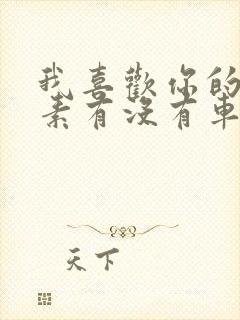 我喜歡你的
素有沒有車
天下